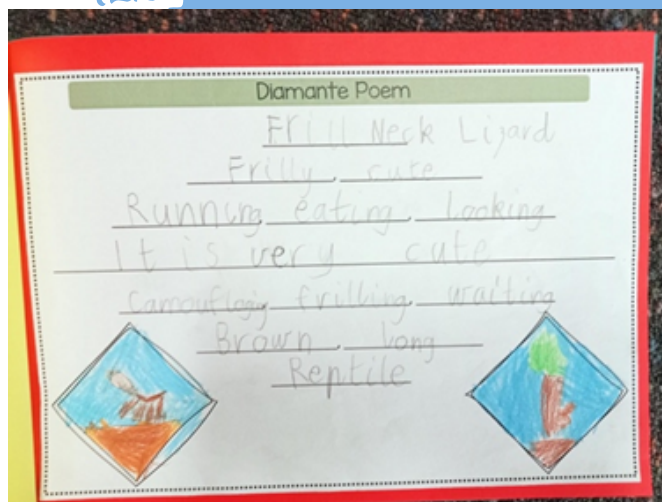 Diamante Poem
Frill Neck Lizard
Frilly, cute
Running, eating, Looking
It is very cute
Camouflogig, frilling, waiting
Brown, long
Reptile